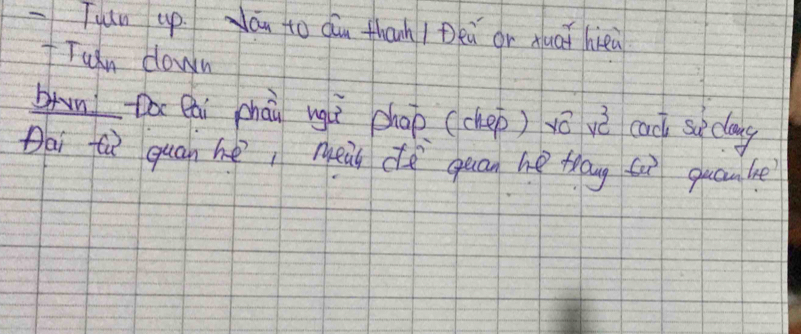 - Turn up. Vặn to âm thanh / Đến or xuất hiện
- Turn down
btvn: - Đọc lại phần ngữ pháp (chép) vô vở cách sử dụng
Đại từ quan hệ, mệnh đề quan hệ trạng từ quan hệ